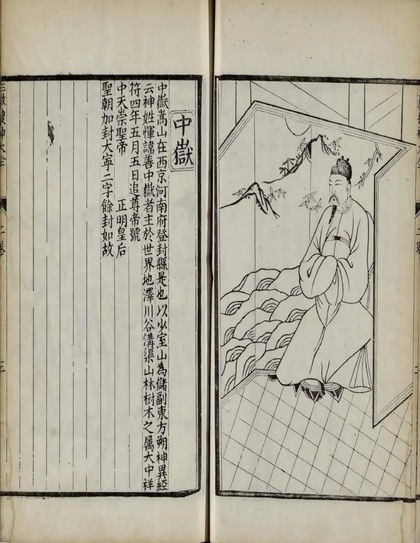 中嶽
中嶽嵩山在西京河南府登封縣是也以少室山為儲副東方朔神異經
云神姓惲諱善中嶽者主於世界地澤川谷溝渠山林樹木之属大中祥
符四年五月五日追尊帝號
中天崇聖帝　正明皇后
聖朝加封大寧二字餘封如故
二卷